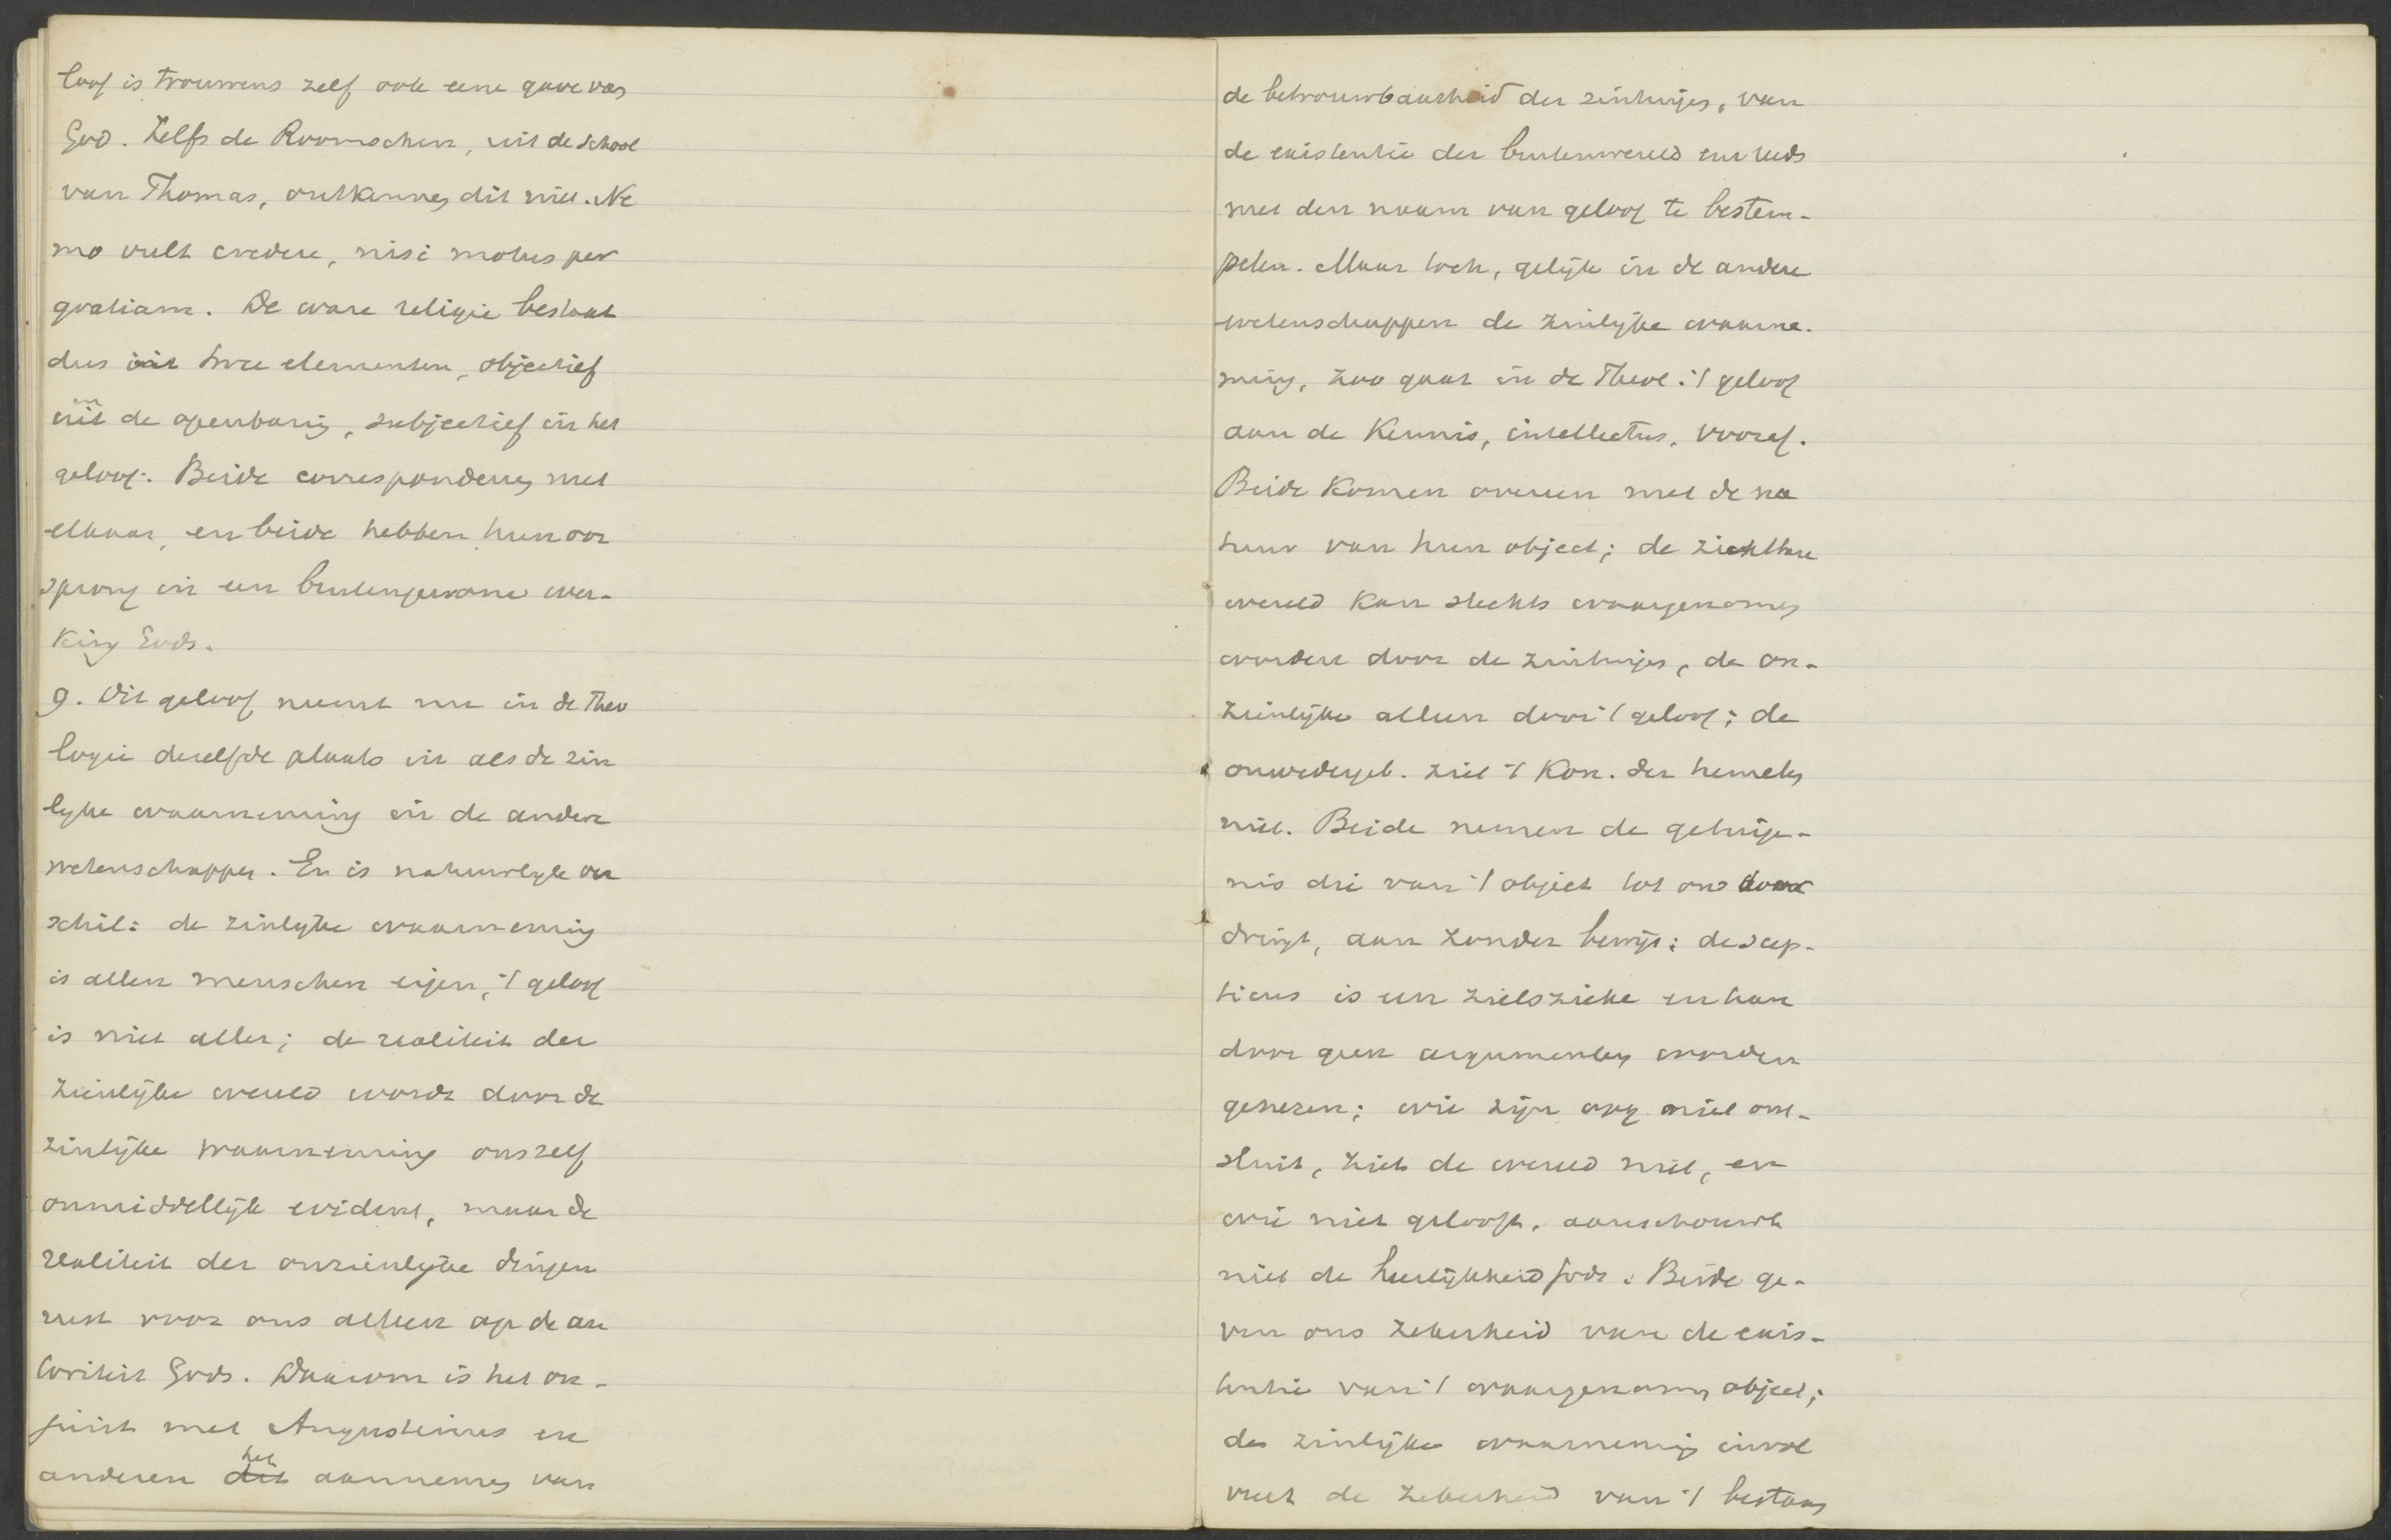 loof is trouwens zelf ook eene gave van
God. Zelfs de Roomschen, uit de school
van Thomas, ontkennen dit niet. Ne
mo vult credere, nisi motus per
gratiam. De ware religie bestaat
dus uit twee elementen, objectief
in uit de openbaring, subjectief in het
geloof. Beide correspondeeren met
elkaar, en beide hebben hun oor
sprong in een buitengewone wer-
king Gods.
9. Dit geloof neemt nu in de Theo
logie dezelfde plaats in als de zin
lijke waarneming in de andere
wetenschappen. Er is natuurlijk on
schil: de zinlijke waarneming
is allen menschen eigen, 't geloof
is niet aller; de realiteit der
zienlijke wereld wordt door de
zinlijke waarneming ons zelf
onmiddellijk evident, maar de
realiteit der onzienlijke dingen
rust voor ons alleen op de au
toriteit Gods. Daarom is het on-
juist met Augustinus en
anderen dit het aannemen van
de betrouwbaarheid der zintuigen, van
de existentie der buitenwereld enz reeds
met den naam van geloof te bestem-
pelen. Maar toch, gelijk in de andere
wetenschappen de zinlijke waarne-
ming, zoo gaat in de Theol. 't geloof
aan de kennis, intellectus, vooraf.
Beide komen overeen met de na
tuur van hun object; de zichtbare
wereld kan slechts waargenomen
worden door de zintuigen, de on-
zienlijke alleen door 't geloof; de
onwedergeb. ziet 't Kon. der hemelen
niet. Beide nemen de getuige-
nis die van 't object tot ons door
dringt, aan zonder bewijs; de scep-
ticus is een zielszieke en kan
door geen argumenten worden
genezen; wie zijn oog niet ont-
sluit, ziet de wereld niet, en
wie niet gelooft, aanschouwt
niet de heerlijkheid Gods. Beide ge-
ven ons zekerheid van de exis-
tentie van 't waargenomen object;
de zinlijke waarneming invol
veert de zekerheid van 't bestaan